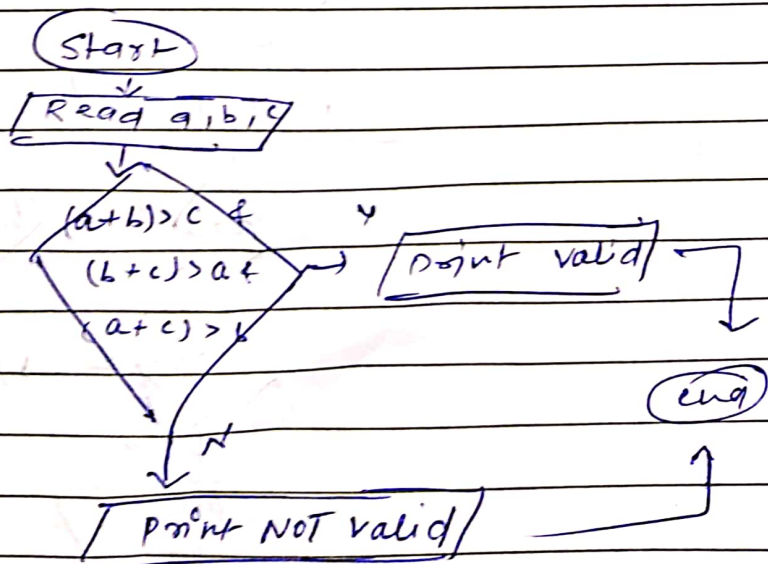 Start
Read a, b, c
(a+b)>c &
Y
(b+c)>a &
Print valid
(a+c)>b
end
N
Print NOT valid